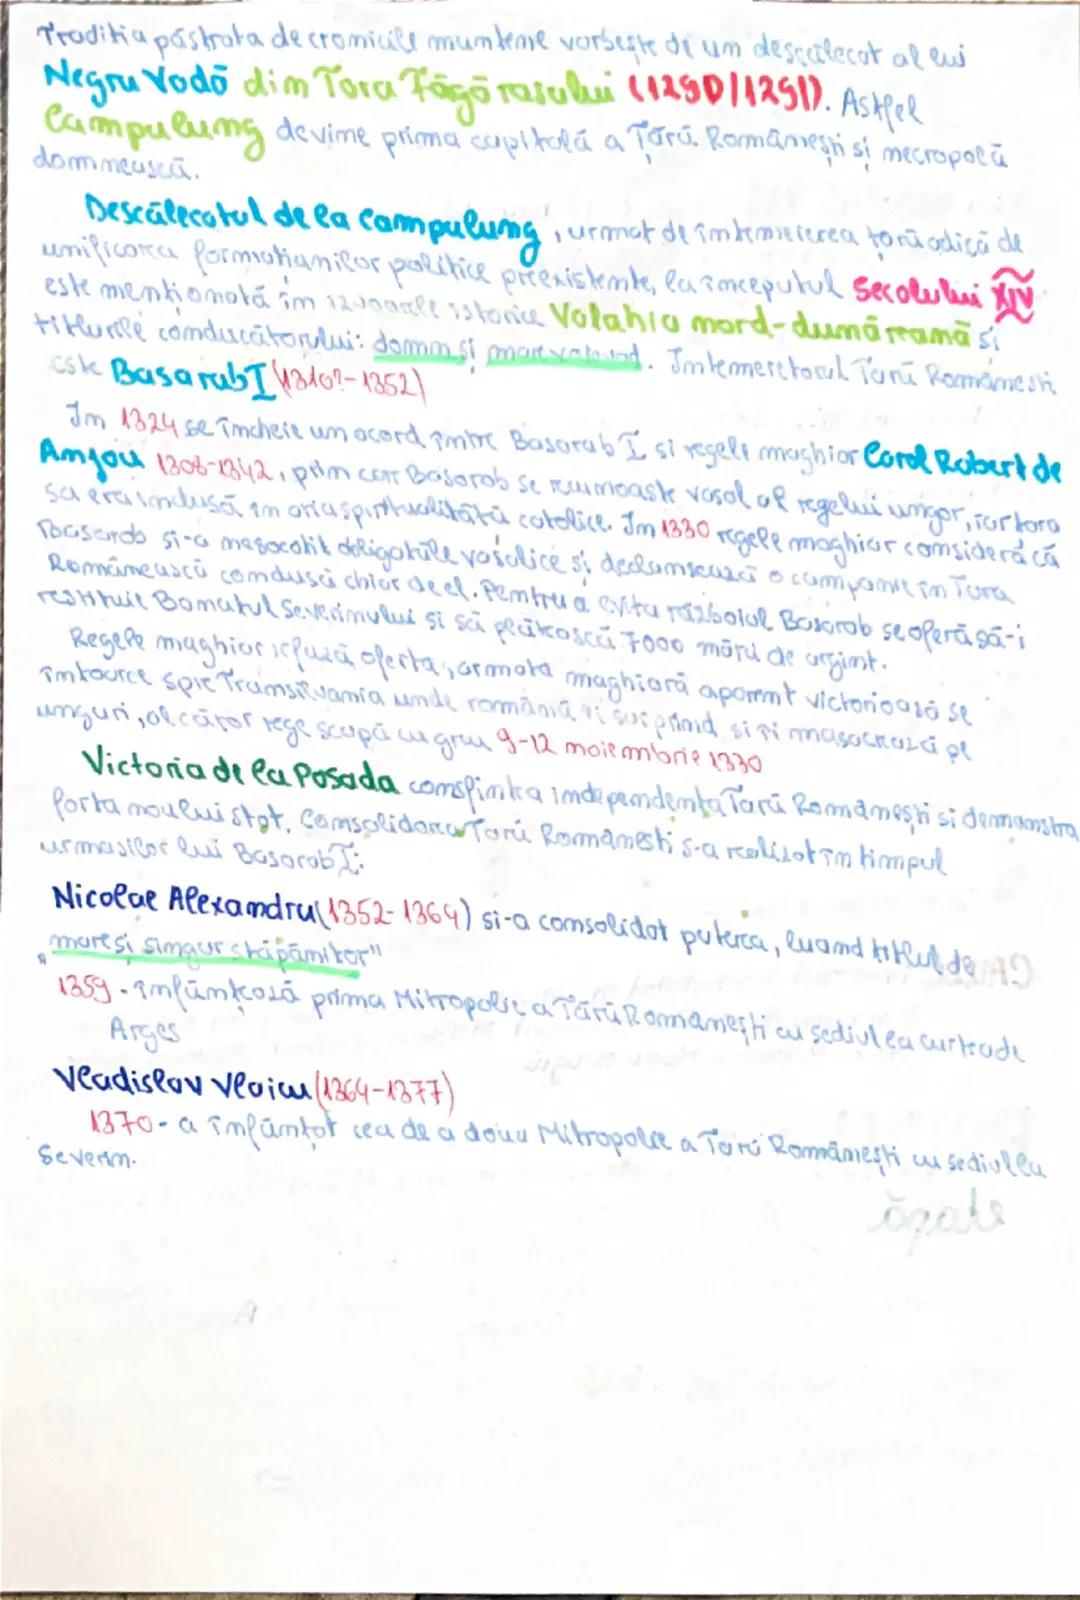 Traditia păstrata de cronicile muntene vorbește de un descălecat al lui
Negru Vodă din Tara Făgărasului (1290/1291). Astfel
Campulung devine prima capitală a Țării Românești și necropolă
domnească.
Descălecatul de la Campulung, urmat de întemeierea țării adică de
unificarea formațiunilor politice preexistente, la începutul Secolului XIV
este menționată în izvoarele istorice Valahia nord-dunăreană și
titlurile conducătorului: domn și mare voievod. Intemeietorul Țării Romanesti
este Basarab I (1310?-1352)
In 1324 se incheie un acord între Basarab I si regele maghiar Carol Robert de
Anjou 1308-1342, prin care Basarab se recunoaste vasal al regelui ungar, iar tara
sa era inclusă în aria spiritualității catolice. In 1330 regele maghiar consideră că
Basarab si-a nesocotit obligatiile vasalice și declansează o campanie în Tara
Românească condusă chiar de el. Pentru a evita războiul Basarab se oferă să-i
restituie Banatul Severinului și să plătească 7000 mărci de argint.
Regele maghiar refuză oferta, armata maghiară aparent victorioasă se
întoarce spre Transilvania unde românii îi surprind și îi masacrează pe
unguri, al căror rege scapă cu greu 9-12 noiembrie 1330
Victoria de la Posada consfinta independenta Țării Romanești si demonstra
forta noului stat. Consolidarea Țării Romanesti s-a realizat în timpul
urmasilor lui Basarab I:
Nicolae Alexandru (1352-1364) si-a consolidat puterea, luand titlul de
„mare și singur stăpânitor"
1359 - înființează prima Mitropolie a Țării Romanești cu sediul la curtea de
Arges
Vladislav Vlaicu (1364-1377)
1370 - a înființat cea de a doua Mitropolie a Țării Românești cu sediul la
Severin.